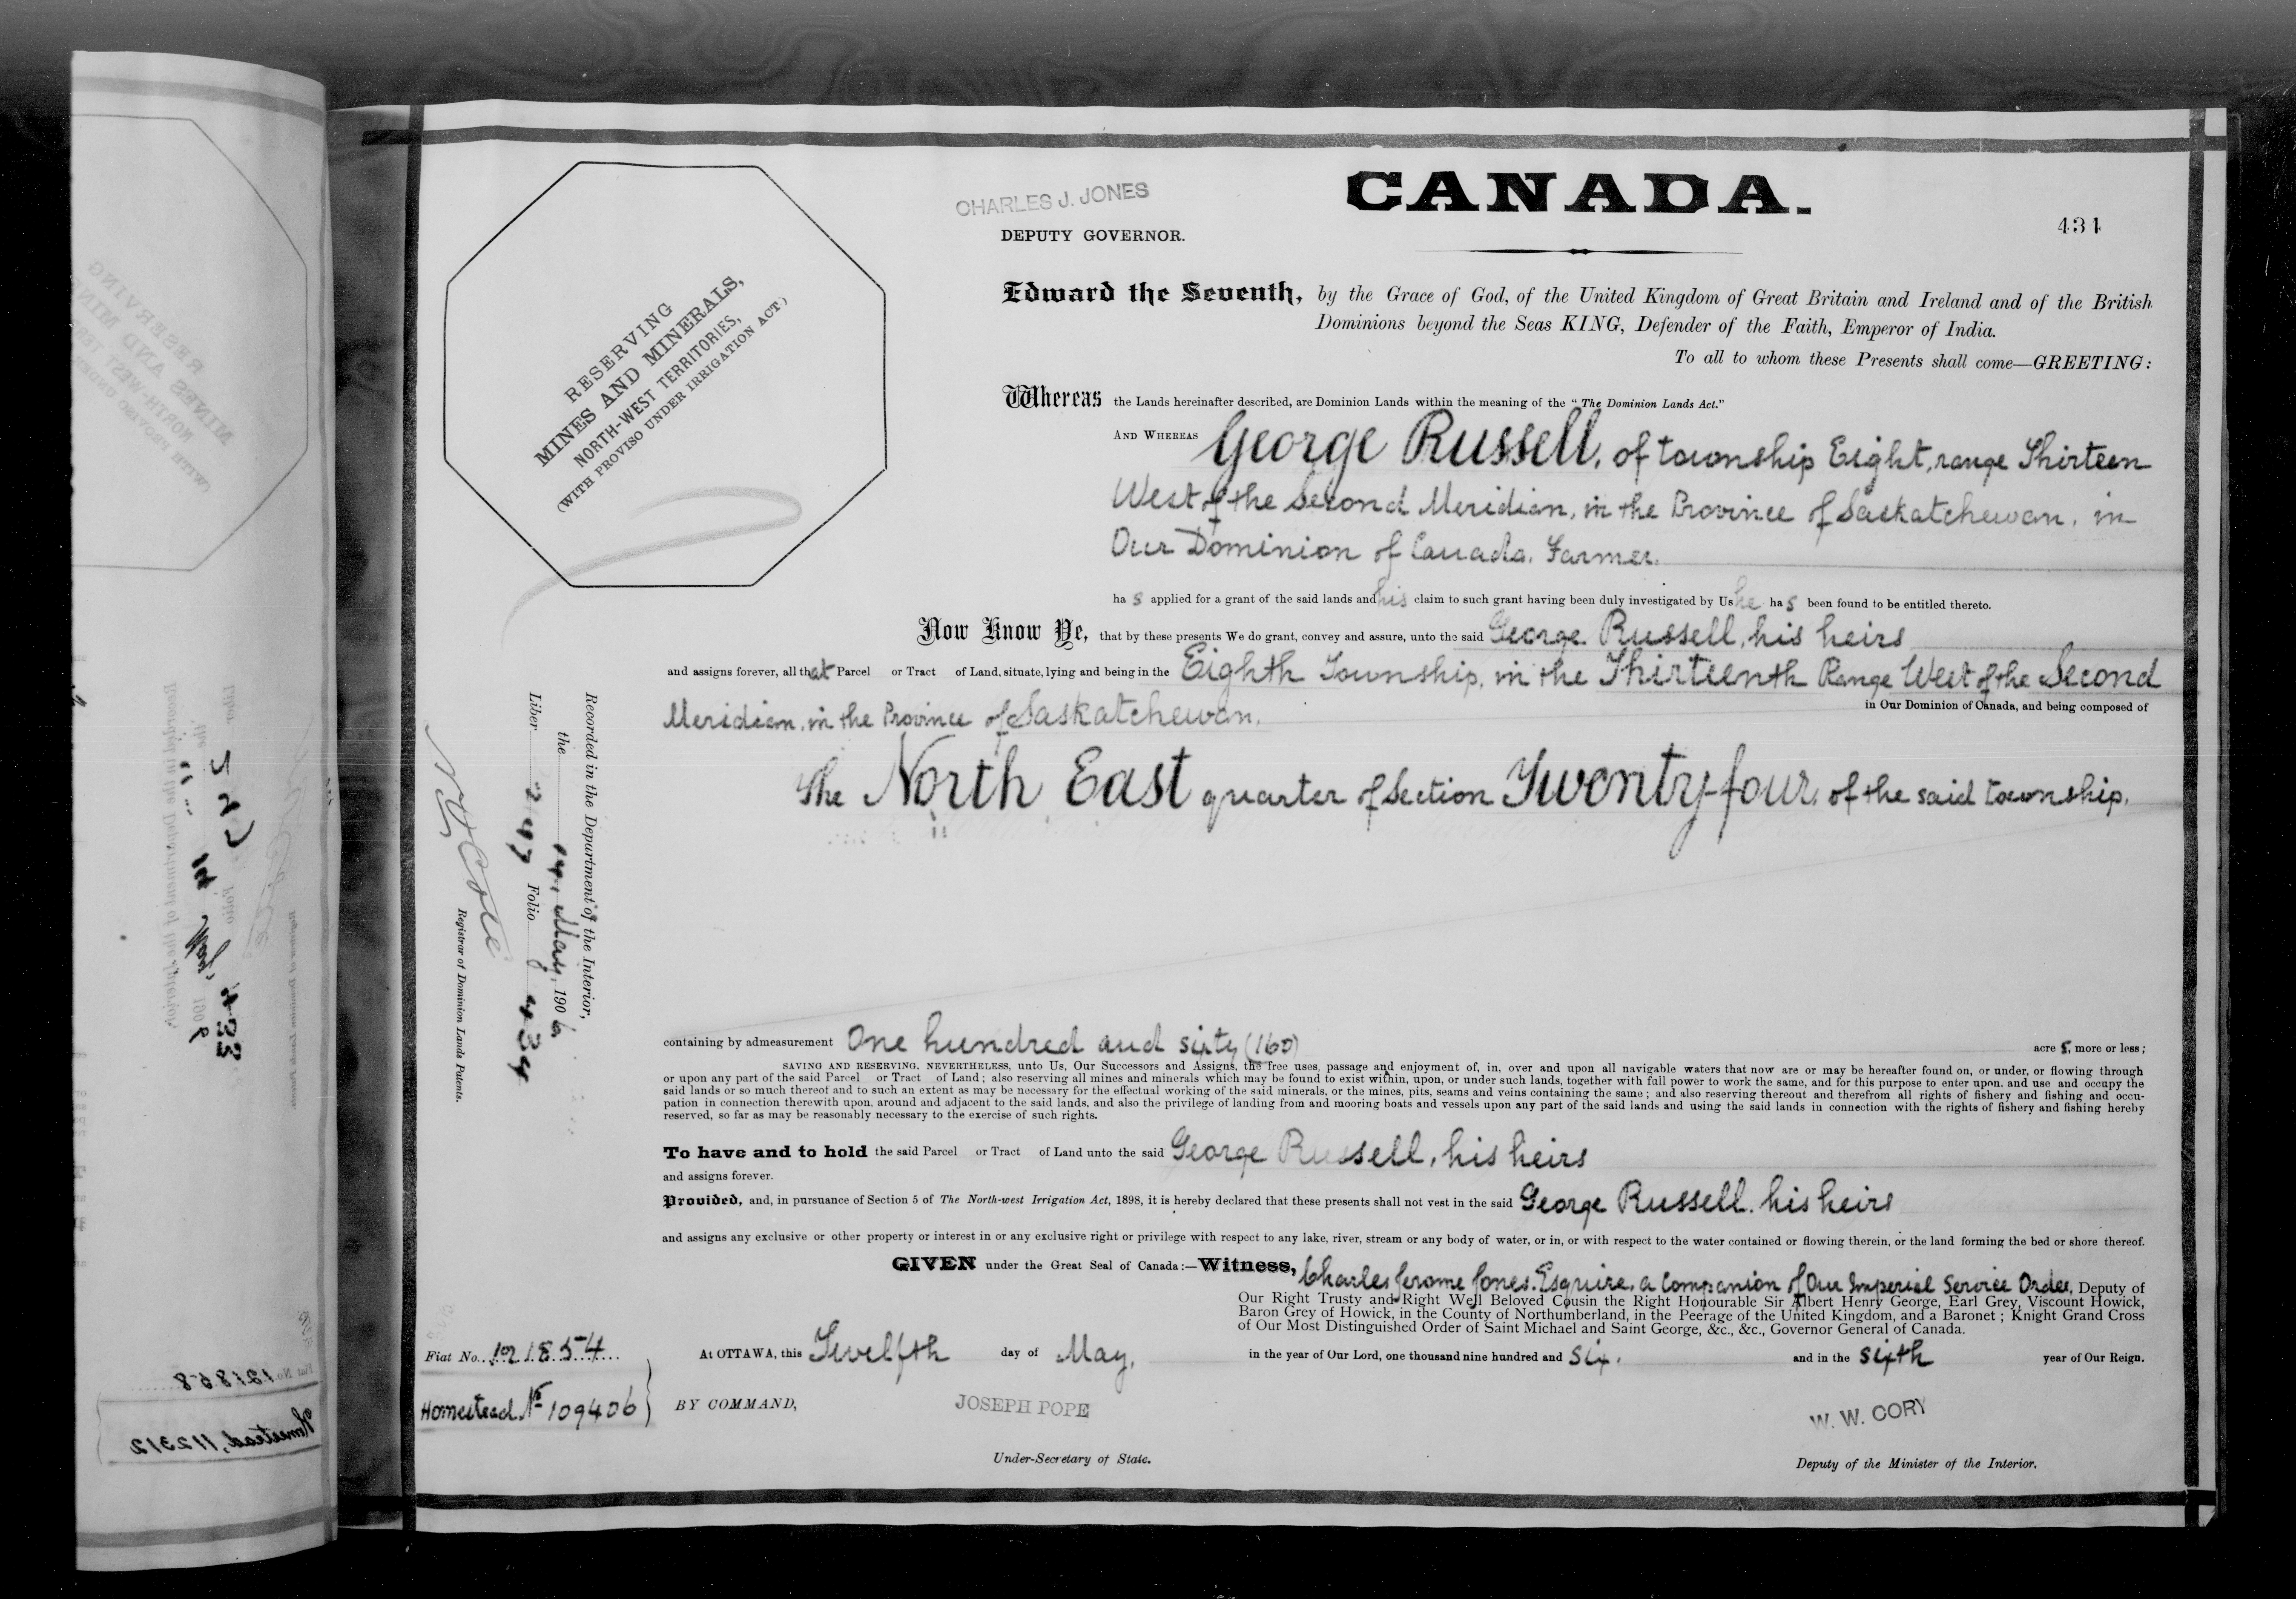 CANADA.
CHARLES J. JONES
DEPUTY GOVERNOR.
434
RESERVING
MINES AND MINERALS,
NORTH-WEST TERRITORIES,
(WITH PROVISO UNDER IRRIGATION ACT.)
Edward the Seventh, by the Grace of God, of the United Kingdom of Great Britain and Ireland and of the British
Dominions beyond the Seas KING, Defender of the Faith, Emperor of India.
To all to whom these Presents shall come—GREETING:
Whereas the Lands hereinafter described, are Dominion Lands within the meaning of the "The Dominion Lands Act."
AND WHEREAS George Russell, of township Eight, range Thirteen
West of the Second Meridian, in the Province of Saskatchewan, in
Our Dominion of Canada, Farmer.
ha s applied for a grant of the said lands and his claim to such grant having been duly investigated by Us he ha s been found to be entitled thereto.
Now Know Ye, that by these presents We do grant, convey and assure, unto the said George Russell, his heirs
and assigns forever, all that Parcel or Tract of Land, situate, lying and being in the Eighth Township, in the Thirteenth Range West of the Second
Meridian, in the Province of Saskatchewan, in Our Dominion of Canada, and being composed of
The North East quarter of Section Twenty-four, of the said township,
containing by admeasurement One hundred and sixty (160) acre s, more or less;
SAVING AND RESERVING, NEVERTHELESS, unto Us, Our Successors and Assigns, the free uses, passage and enjoyment of, in, over and upon all navigable waters that now are or may be hereafter found on, or under, or flowing through
or upon any part of the said Parcel or Tract of Land; also reserving all mines and minerals which may be found to exist within, upon, or under such lands, together with full power to work the same, and for this purpose to enter upon, and use and occupy the
said lands or so much thereof and to such an extent as may be necessary for the effectual working of the said minerals, or the mines, pits, seams and veins containing the same; and also reserving thereout and therefrom all rights of fishery and fishing and occu-
pation in connection therewith upon, around and adjacent to the said lands, and also the privilege of landing from and mooring boats and vessels upon any part of the said lands and using the said lands in connection with the rights of fishery and fishing hereby
reserved, so far as may be reasonably necessary to the exercise of such rights.
To have and to hold the said Parcel or Tract of Land unto the said George Russell, his heirs
and assigns forever.
Provided, and, in pursuance of Section 5 of The North-west Irrigation Act, 1898, it is hereby declared that these presents shall not vest in the said George Russell, his heirs
and assigns any exclusive or other property or interest in or any exclusive right or privilege with respect to any lake, river, stream or any body of water, or in, or with respect to the water contained or flowing therein, or the land forming the bed or shore thereof.
GIVEN under the Great Seal of Canada:—Witness, Charles Jerome Jones, Esquire, a Companion of Our Imperial Service Order, Deputy of
Our Right Trusty and Right Well Beloved Cousin the Right Honourable Sir Albert Henry George, Earl Grey, Viscount Howick,
Baron Grey of Howick, in the County of Northumberland, in the Peerage of the United Kingdom, and a Baronet; Knight Grand Cross
of Our Most Distinguished Order of Saint Michael and Saint George, &c., &c., Governor General of Canada.
At OTTAWA, this Twelfth day of May, in the year of Our Lord, one thousand nine hundred and six, and in the sixth year of Our Reign.
BY COMMAND,
JOSEPH POPE
Under-Secretary of State.
W. W. CORY
Deputy of the Minister of the Interior.
Recorded in the Department of the Interior,
the 14, May, 1906
Liber 247 Folio 434
N. O. Cote
Registrar of Dominion Lands Patents.
Fiat No. 121854
Homestead No 109406
Fiat No. 121868
Homestead, 112312